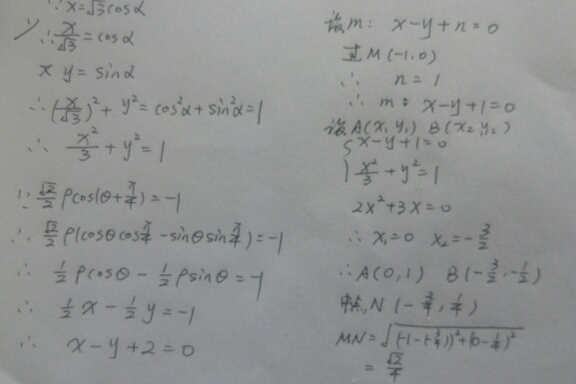 ∵ x=√3cosα
1) ∴ x/√3 = cosα
又 y = sinα
∴ (x/√3)² + y² = cos²α + sin²α = 1
∴ x²/3 + y² = 1
∵ √2/2 ρcos(θ+π/4) = -1
∴ √2/2 ρ(cosθcosπ/4 - sinθsinπ/4) = -1
∴ 1/2 ρcosθ - 1/2 ρsinθ = -1
∴ 1/2 x - 1/2 y = -1
∴ x-y+2=0
设m: x-y+n=0
过M(-1,0)
∴ n=1
∴ m: x-y+1=0
设A(x,y₁) B(x₂,y₂)
{ x-y+1=0
x²/3+y²=1
2x²+3x=0
∴ x₁=0 x₂=-3/2
∴A(0,1) B(-3/2,-1/2)
中点N(-3/4,1/4)
MN=√((-1-(-3/4))²+(0-1/4)²
= √2/4